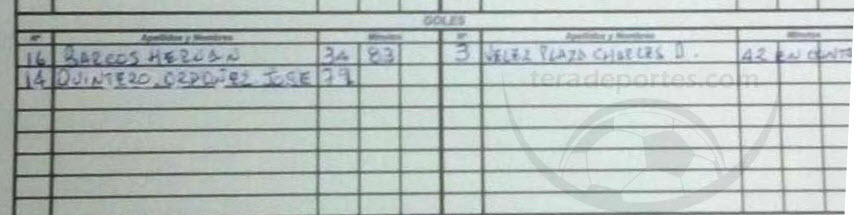 GOLES
Nº Apellidos y Nombres Minutos Nº Apellidos y Nombres Minutos
16 BARCOS HERNÁN 34 83 3 VELEZ PLAZA CHARLES D. 42 EN CONTRA
14 QUINTERO ORDOÑEZ JOSE 79
teradeportes.com